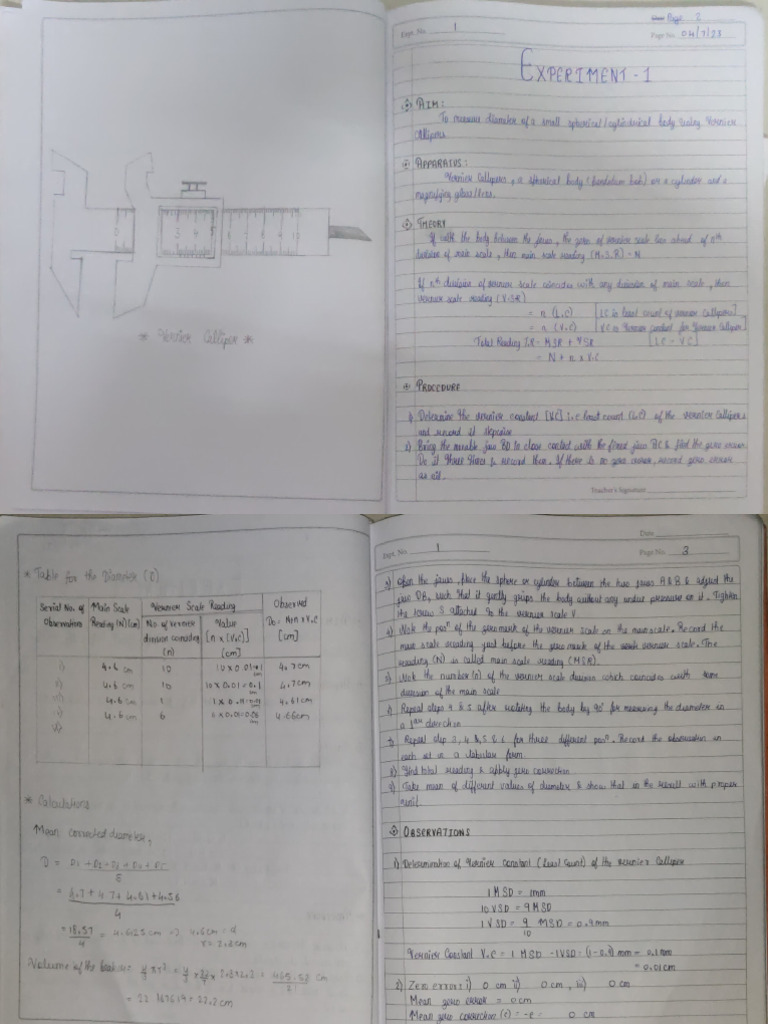 * Vernier Calliper *
Page 2
Expt. No. 1
Page No. 04/7/23
EXPERIMENT - 1
AIM:
To measure diameter of a small spherical/cylindrical body using Vernier
Callipers
APPARATUS:
Vernier Callipers, a spherical body (pendulum bob) or a cylinder and a
magnifying glass/lens.
THEORY
If with the body between the jaws, the zero of vernier scale lies ahead of nth
division of main scale, then main scale reading (M.S.R) = N
If nth division of vernier scale coincides with any division of main scale, then
vernier scale reading (V.S.R)
= n (L.C) [LC is least count of vernier Callipers]
= n (V.C) [VC is Vernier constant for Vernier Calliper]
Total Reading T.R = MSR + VSR [LC = VC]
= N + n x V.C
PROCEDURE
1) Determine the vernier constant [VC] i.e least count (LC) of the vernier Callipers
and record it stepwise
2) Bring the movable jaw BD in close contact with the fixed jaw AC & find the zero error.
Do it three times & record them. If there is no zero error, record zero error
as nil.
Teacher's Signature
* Table for the Diameter (D)
Serial No. of Observation
Main Scale Reading (N) (cm)
Vernier Scale Reading
No. of vernier division coinciding (n)
Value [n x (V.C)] (cm)
Observed Do = N+n x V.C [cm]
i) 4.6 cm 10 10 x 0.01=0.1 cm 4.7cm
4.6 cm 10 10 x 0.01=0.1 cm 4.7cm
4.6 cm 1 1 x 0.01=0.01 cm 4.61cm
4.6 cm 6 6 x 0.01=0.06 cm 4.66cm
* Calculations
Mean corrected diameter,
= 18.57
4
= 4.6425 cm
Date
Expt. No. 1
Page No. 3
3) Open the jaws, place the sphere or cylinder between the two jaws A & B & adjust the
jaw DB, such that it gently grips the body without any undue pressure on it. Tighten
the screw S attached to the vernier scale V.
4) Note the posn of the zero mark of the vernier scale on the main scale. Record the
main scale reading just before the zero mark of the vernier scale. The
reading (N) is called main scale reading (MSR).
5) Note the number (n) of the vernier scale division which coincides with some
division of the main scale
6) Repeat steps 4 & 5 after rotating the body by 90° for measuring the diameter in
a direction
7) Repeat step 3, 4 & 5 & 6 for three different posn. Record the observation in
each set in a tabular form
8) Find total reading & apply zero correction
9) Take mean of different values of diameter & show that in the result with proper
unit.
OBSERVATIONS
1) Determination of Vernier Constant (Least Count) of the vernier Calliper
1 MSD = mm
10 VSD = 9 MSD
1 VSD = 9/10 MSD = 0.9mm
Vernier Constant V.C = 1 MSD - 1VSD = (1-0.9) mm = 0.1mm
= 0.01cm
2) Zero error: i) 0 cm ii) 0 cm, iii) 0 cm
Mean zero error = 0 cm
Mean zero correction (c) = -e = 0 cm